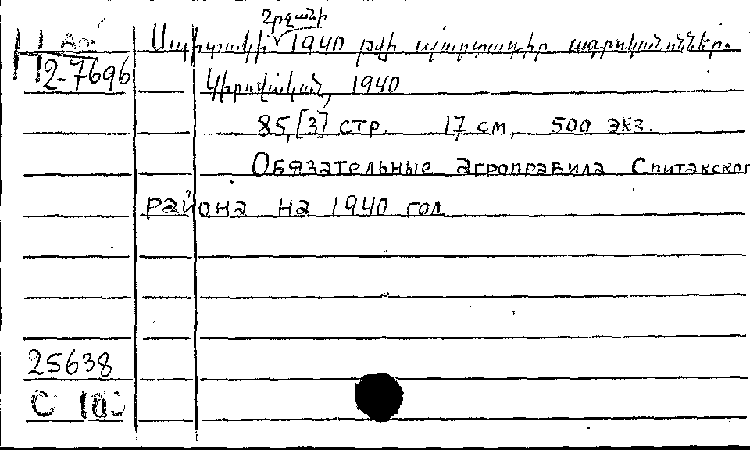 շրջանի
Սպիտակի 1940 թվի պարտադիր ագրոկանոնները.
12-7696
Կիրովական, 1940
85, [3] стр. 17 см, 500 экз.
Обязательные агроправила Спитакског
района на 1940 год
25638
С 10